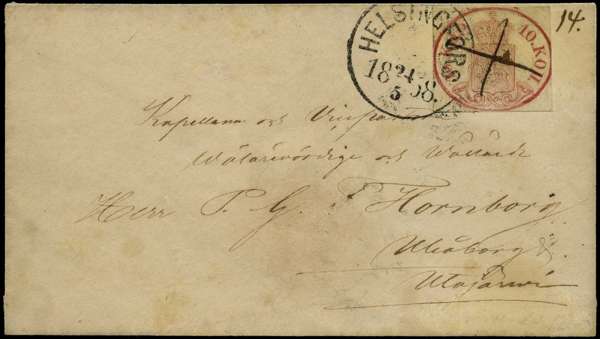 HELSINGFORS
18 24/5 58.
10. KOP.
14.
Kapellanen och Vicepa
Wälärevördige och Wällärde
Herr P. G. F. Hornborg
Uleåborg
Utajärvi